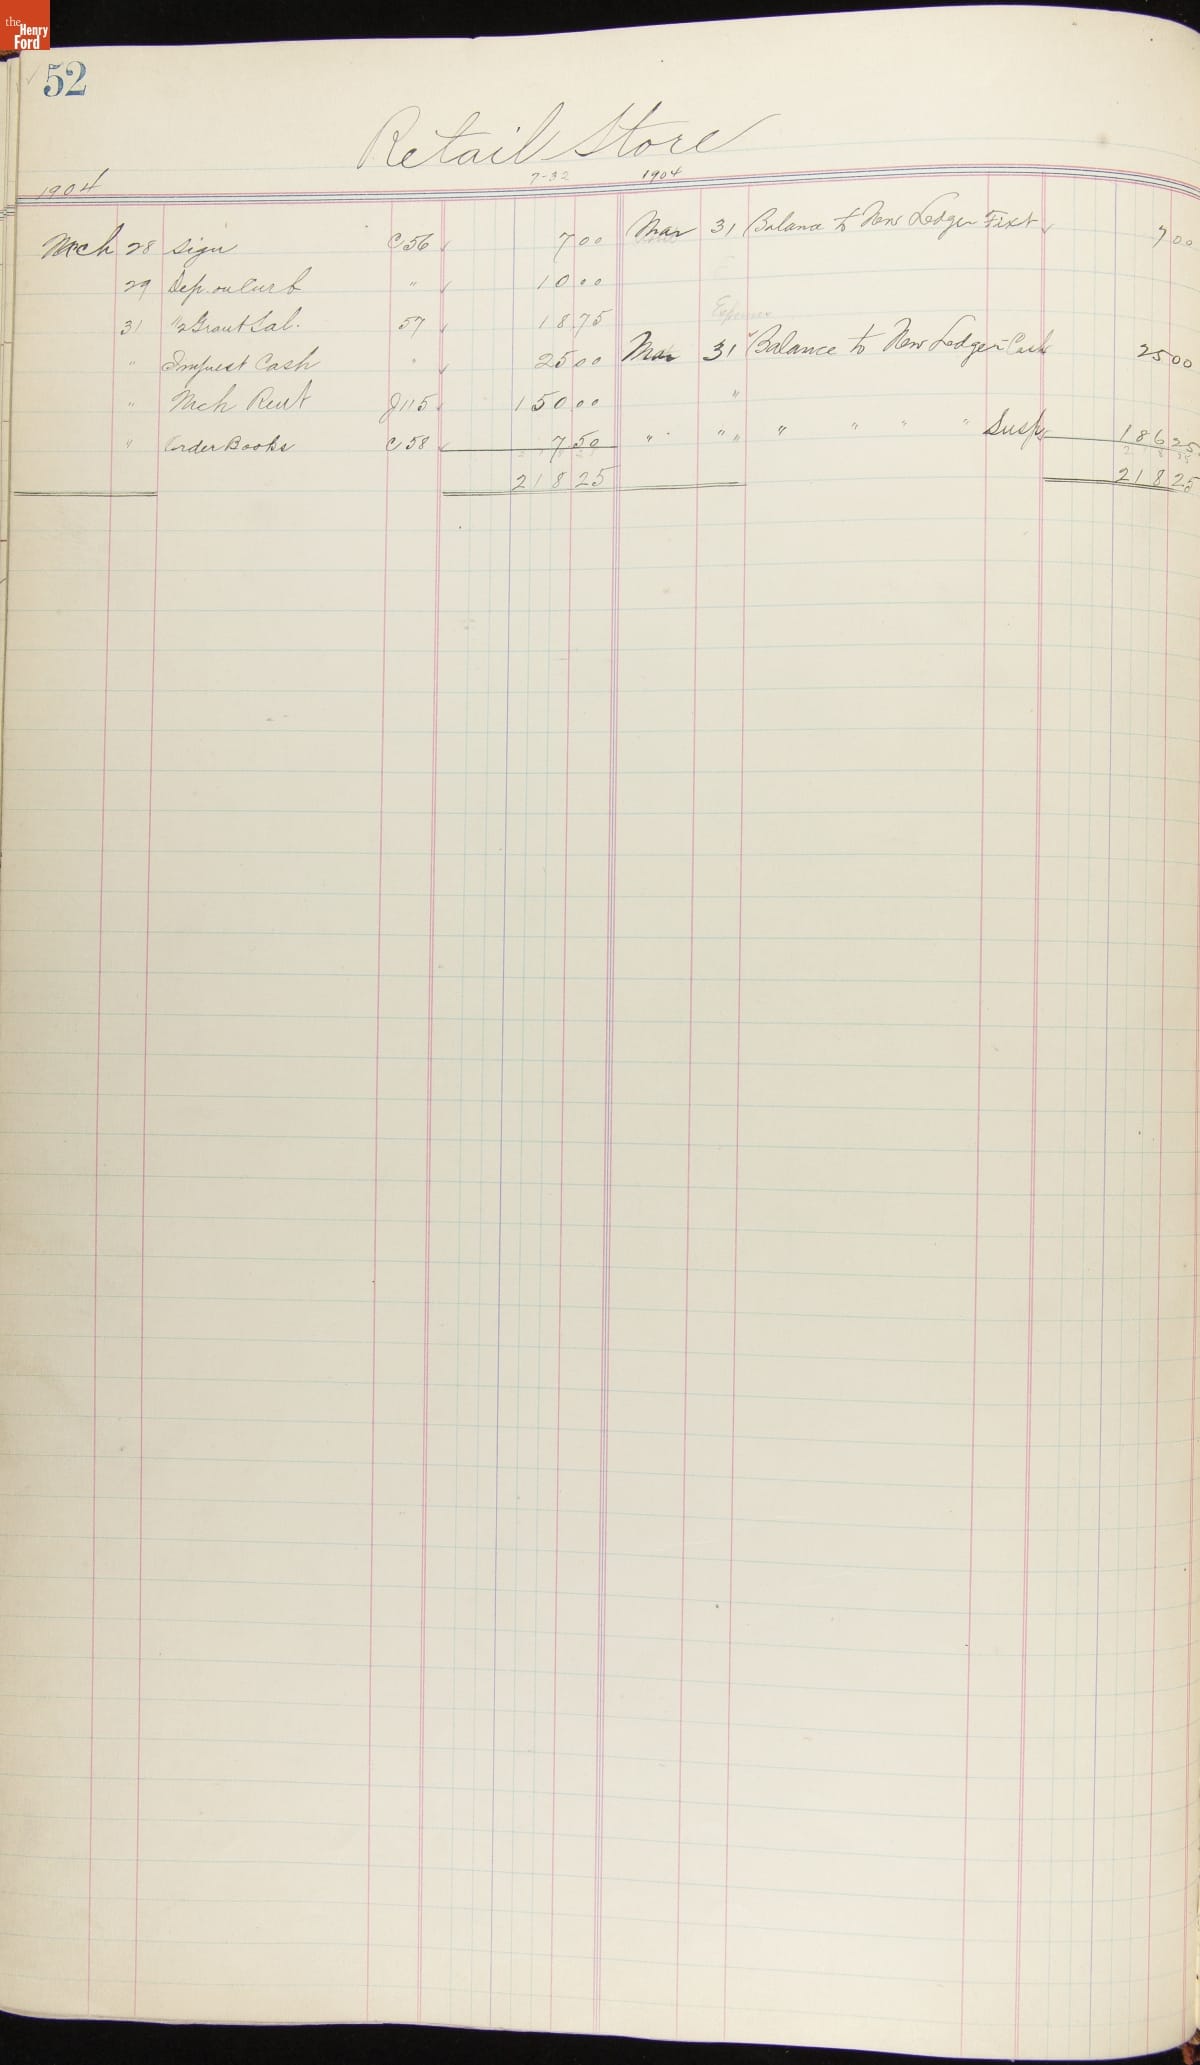 the Henry Ford
52
Retail Store
7-32
1904
1904
Mch 28 Sign C 56 ✓ 7 00
29 Dep. on Curb " ✓ 10 00
31 1/2 Grant Sal. 57 ✓ 18 75
" Impuest Cash " ✓ 25 00
" Mch Rent J 115 ✓ 150 00
" Order Books C 58 ✓ 7 50
218 25
Mar 31 Balance to New Ledger Fixt ✓ 7 00
Expense
Mar 31 Balance to New Ledger Cash 25 00
"
" " " " " " " Susp 186 25
218 25